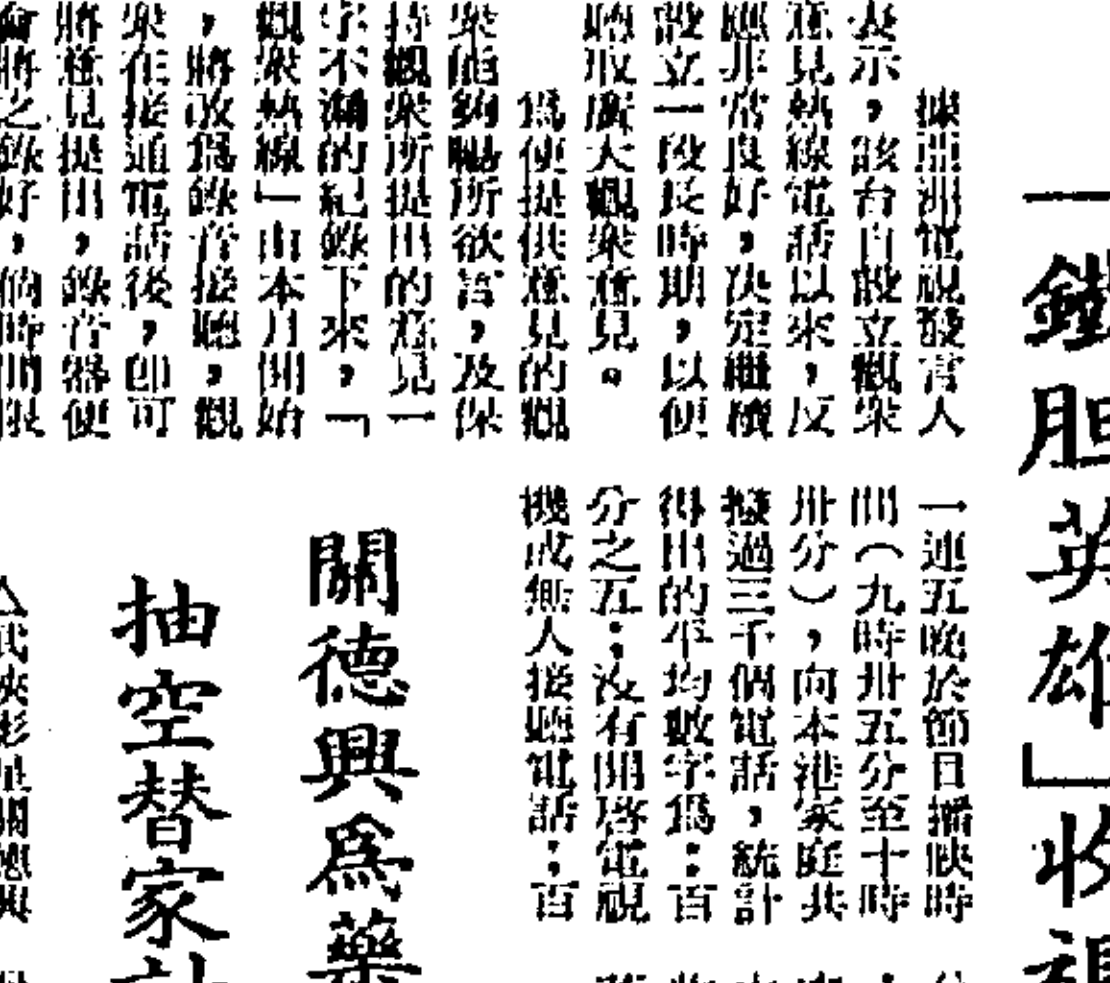 「鐵胆英雄」收視
據亞洲電視發言人
表示，該台自設立觀衆
意見熱線電話以來，反
應非常良好，决定繼續
設立一段長時期，以便
聽取廣大觀衆意見。
爲便提供意見的觀
衆能夠暢所欲言，及保
持觀衆所提出的意見一
字不漏的紀錄下來，「
觀衆熱線」由本月開始
，將改爲錄音接聽，觀
衆在接通電話後，即可
將意見提出，錄音器便
會將之錄好，倘時間長
一連五晚於節目播映時
間（九時卅五分至十時
卅分），向本港家庭共
撥過三千個電話，統計
得出的平均數字爲：百
分之五；沒有開啓電視
機或無人接聽電話；百
關德興爲藥
抽空替家
△武俠影星關德興